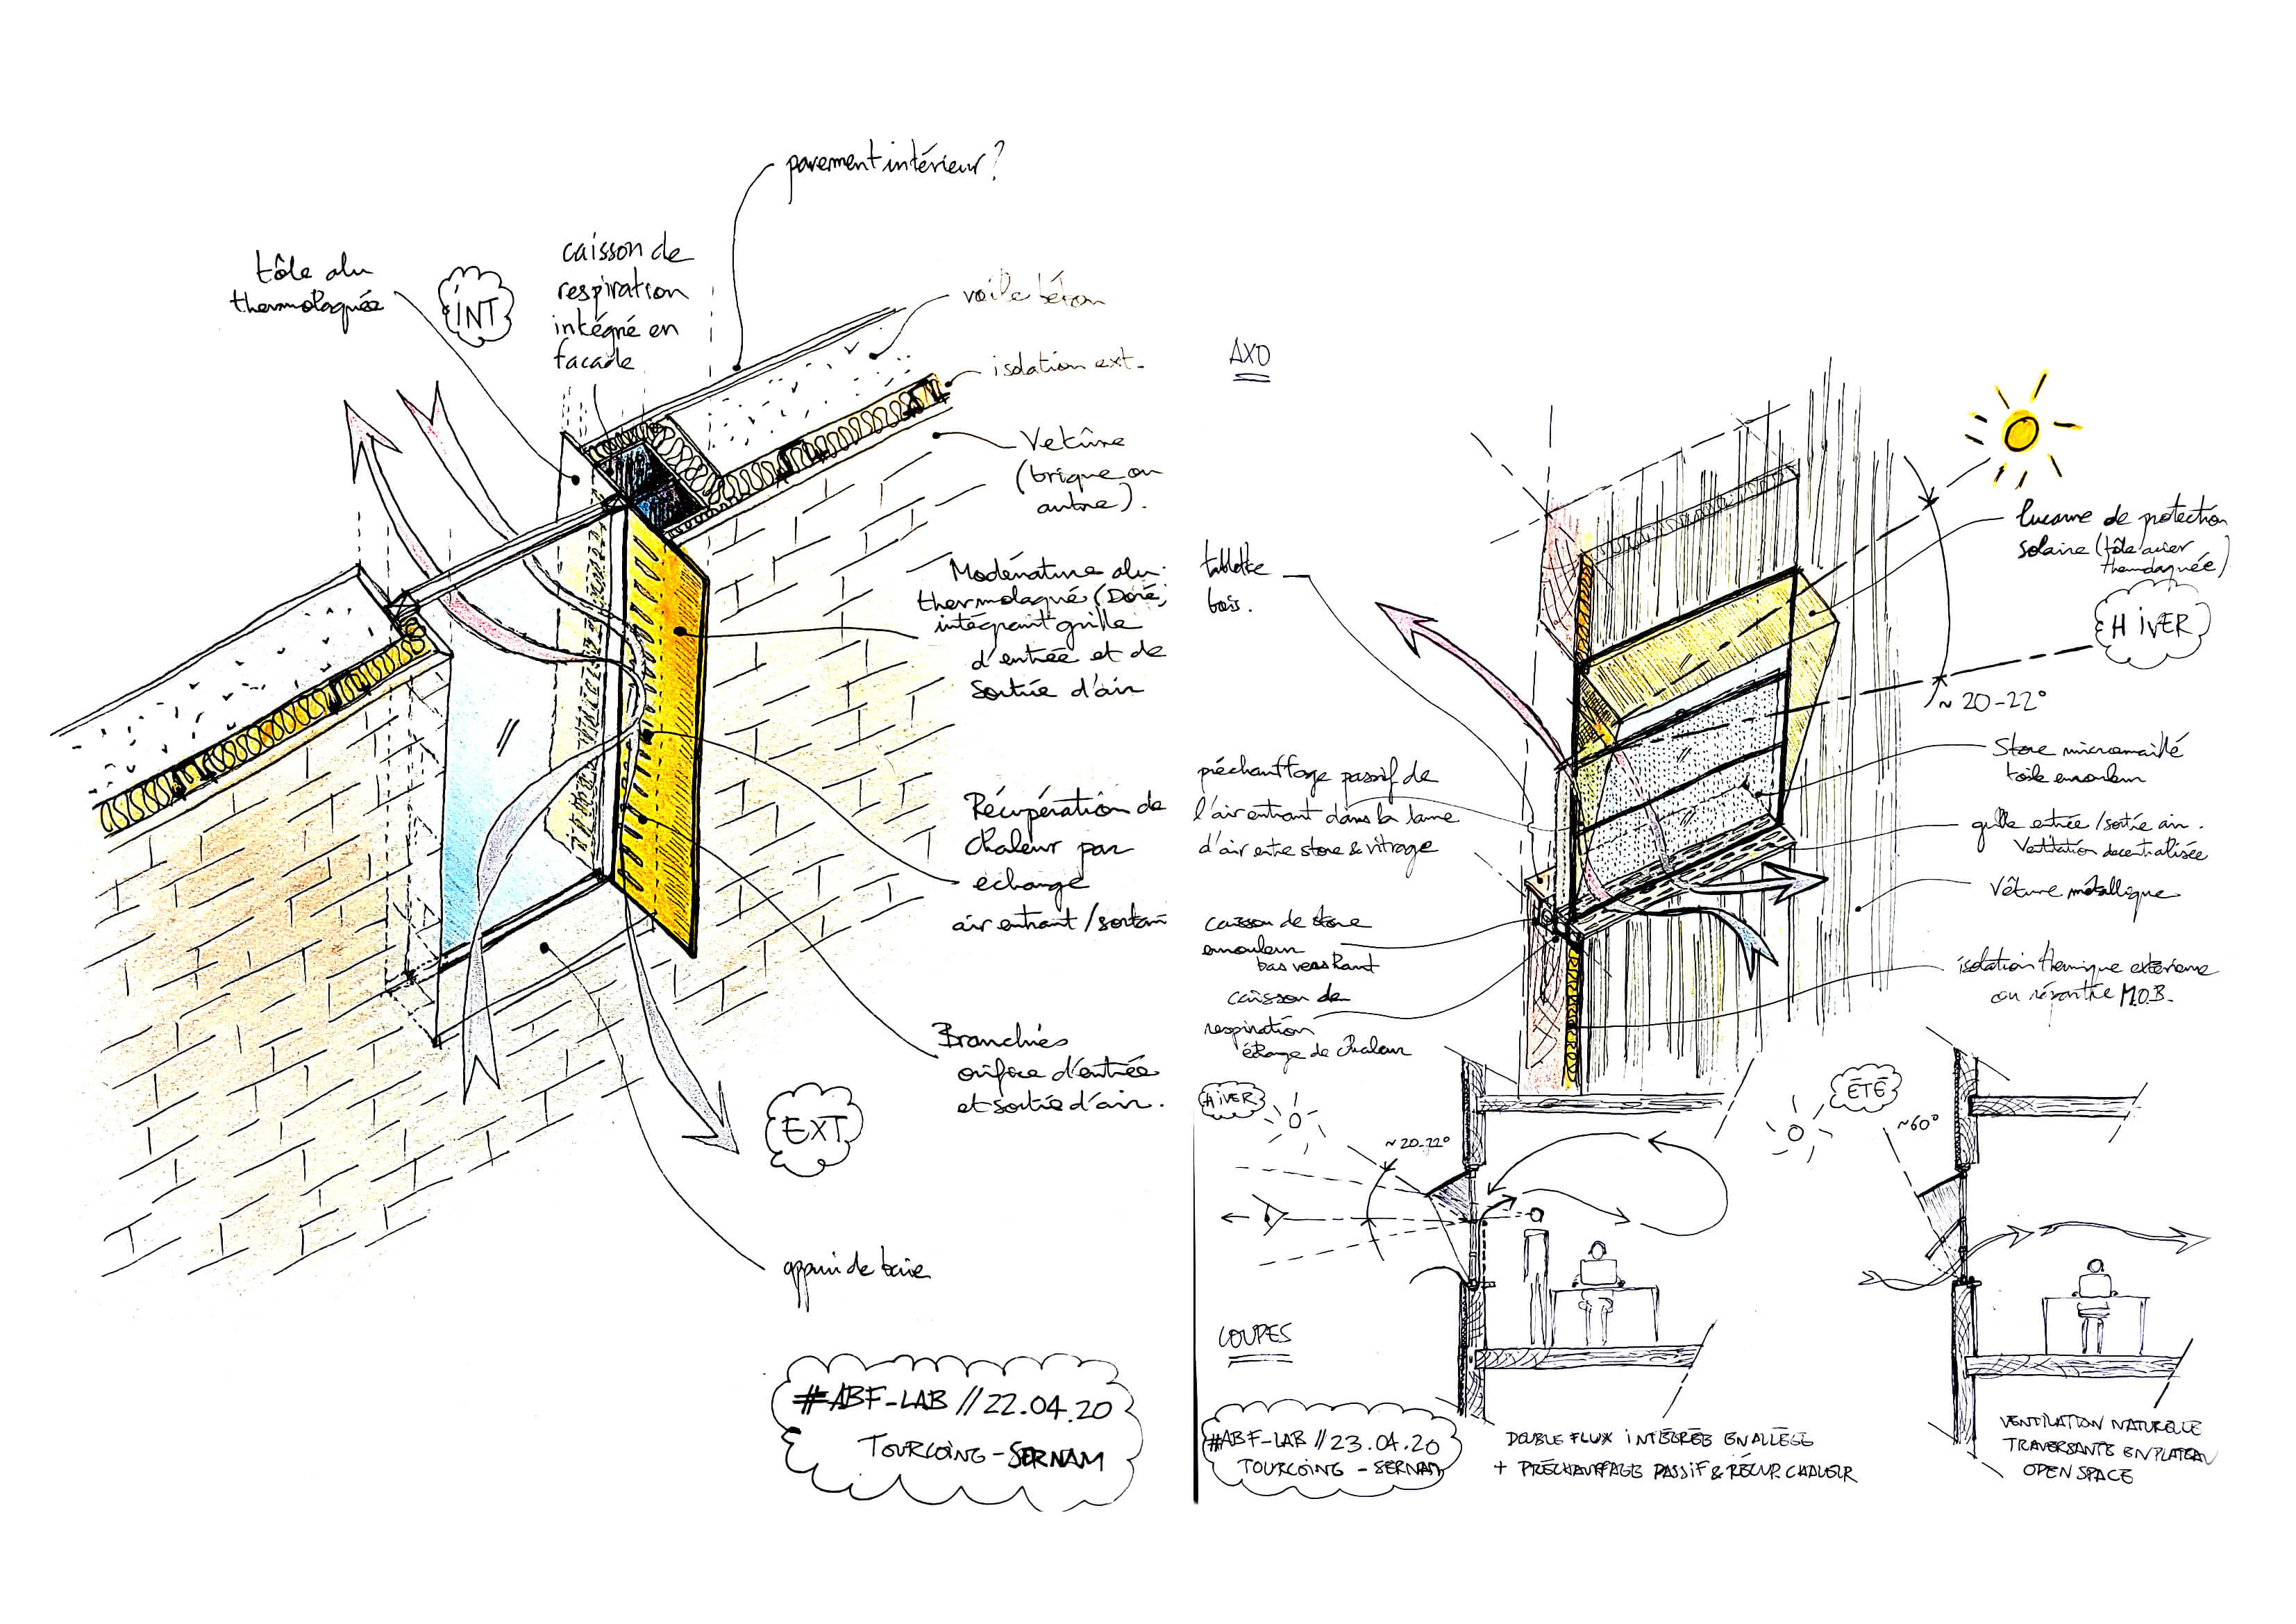 parement intérieur ?
tôle alu
thermolaquée
INT
caisson de
respiration
intégré en
facade
voile béton
isolation ext.
Vêture
(brique ou
autre).
Modénature alu
thermolaqué (Doré)
intégrant grille
d'entrée et de
Sortie d'air
Récupération de
Chaleur par
échange
air entrant / sortant
Branchies
orifice d'entrée
et sortie d'air.
EXT
appui de baie
#ABF-LAB // 22.04.20
TOURCOING - SERNAM
AXO
lucarne de protection
solaire (tôle acier
thermolaquée)
HIVER
~ 20-22°
tablette
bois.
Store micromaillé
toile enrouleur
préchauffage passif de
l'air entrant dans la lame
d'air entre store & vitrage
grille entrée / sortie air.
Ventilation decentralisée
Vêture métallique
caisson de store
enrouleur
bas vers haut
caisson de
respiration
échange de chaleur
isolation thermique exterieure
ou répartie M.O.B.
HIVER
~ 20-22°
ÉTÉ
~60°
COUPES
#ABF-LAB // 23.04.20
TOURCOING - SERNAM
DOUBLE FLUX INTÉGRÉE EN ALLÈGE
+ PRÉCHAUFFAGE PASSIF & RÉCUP. CHALEUR
VENTILATION NATURELLE
TRAVERSANTE EN PLATEAU
OPEN SPACE